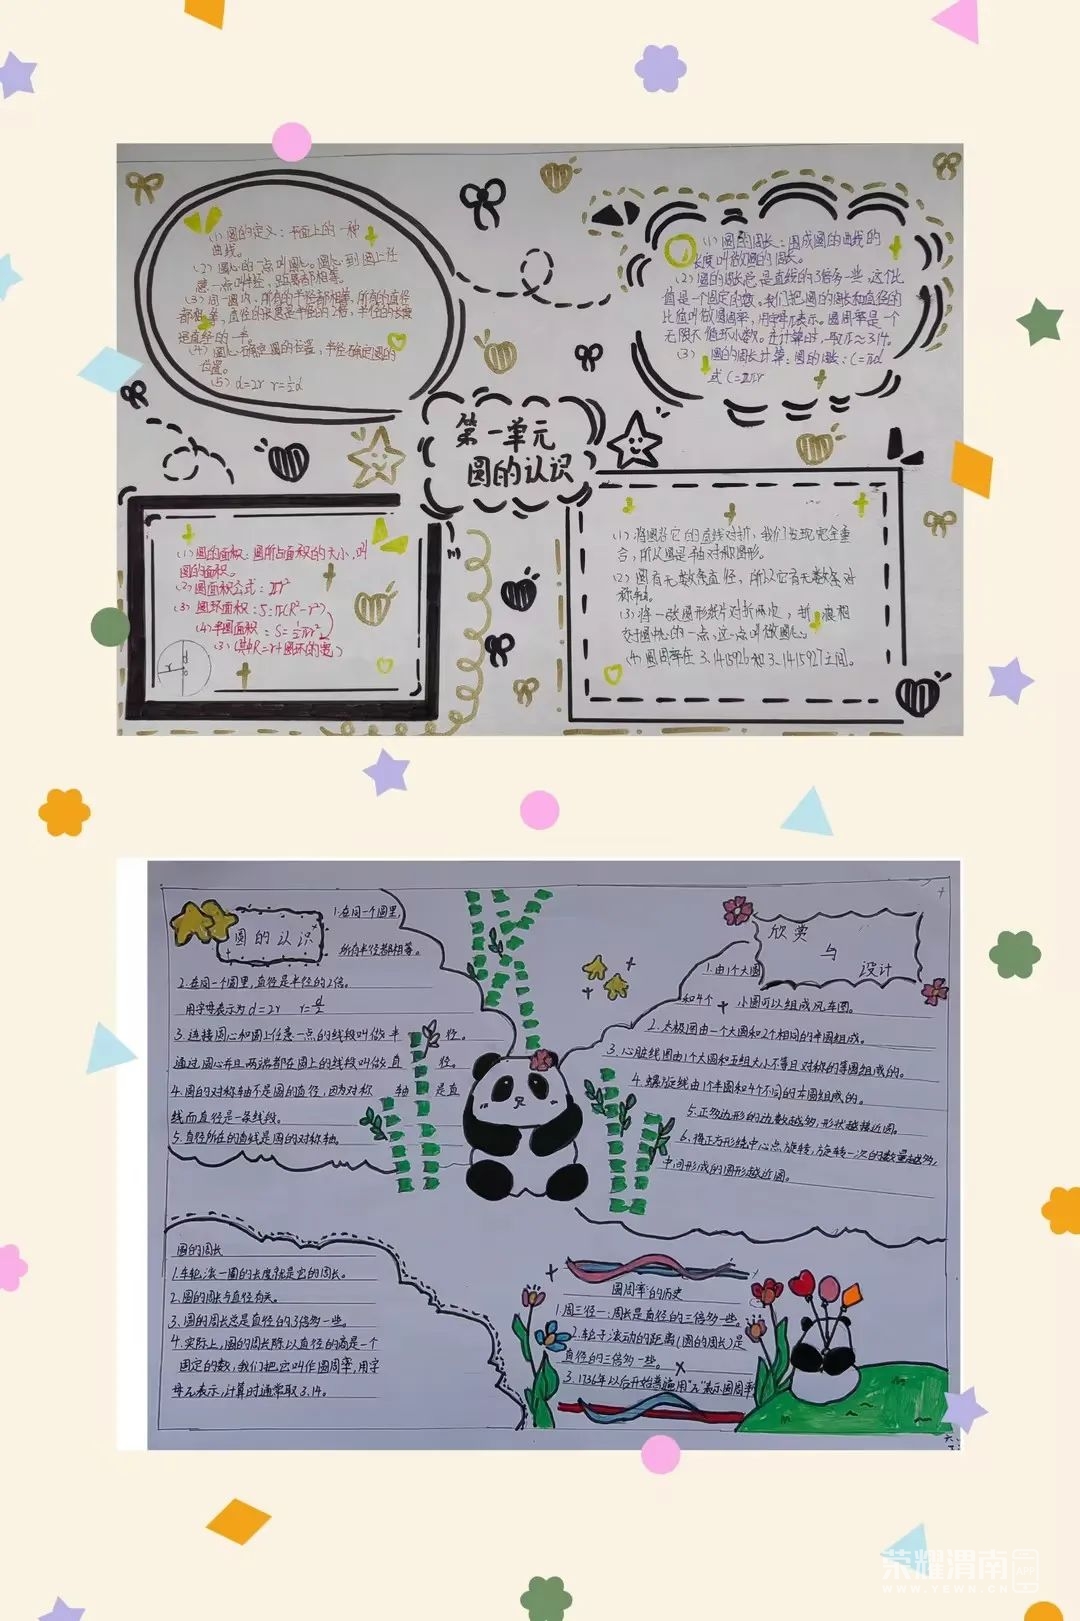 (1)圆的定义：平面上的一种
曲线。
(2)圆心的一点叫圆心。圆心到圆上任
意一点叫半径，距离都相等。
(3)同一圆内，所有的半径都相等，所有的直径
都相等，直径的长度是半径的2倍，半径的长度
是直径的一半。
(4)圆心确定圆的位置，半径确定圆的
位置。
(5) d=2r r=½d
(1)圆的周长：围成圆的曲线的
长度叫做圆的周长。
(2)圆的周长总是直线的3倍多一些，这个比
值是一个固定的数。我们把圆的周长和直径的
比值叫做圆周率，用字母π表示。圆周率是一个
无限不循环小数。在计算时，取π≈3.14。
(3)圆的周长计算：圆的周长：C=πd
或C=2πr
第一单元
圆的认识
(1)圆的面积：圆所占面积的大小，叫
圆的面积。
(2)圆面积公式：πr²
(3)圆环面积：S=π(R²-r²)
(4)半圆面积：S=½πr²
(3)(其中R=r+圆环的宽)
r
d
(1)将圆沿它的直线对折，我们发现完全重
合，所以圆是轴对称图形。
(2)圆有无数条直径，所以它有无数条对
称轴。
(3)将一张圆形纸片对折两次，折痕相
交于圆中心的一点，这一点叫做圆心。
(4)圆周率在3.1415926和3.1415927之间。
圆的认识
1.在同一个圆里，
所有半径都相等。
2.在同一个圆里，直径是半径的2倍。
用字母表示为d=2r r=d/2
3.连接圆心和圆上任意一点的线段叫做半径。
通过圆心并且两端都在圆上的线段叫做直径。
4.圆的对称轴不是圆的直径，因为对称轴是直
线而直径是一条线段。
5.直径所在的直线是圆的对称轴。
欣赏
与
设计
1.由1个大圆
和4个小圆可以组成风车图。
2.太极图由一个大圆和2个相同的半圆组成。
3.心脏线图由1个大圆和五组大小不等且对称的等圆组成的。
4.螺旋线由1个半圆和4个不同的本圆组成的。
5.正多边形的边数越多，形状越接近圆。
6.将正方形绕中心点旋转，旋转一次的数量越多，
中间形成的图形越近圆。
圆的周长
1.车轮滚一圈的长度就是它的周长。
2.圆的周长与直径有关。
3.圆的周长总是直径的3倍多一些。
4.实际上，圆的周长除以直径的商是一个
固定的数，我们把它叫作圆周率，用字
母π表示，计算时通常取3.14。
圆周率的历史
1.周三径一：周长是直径的三倍多一些。
2.轮子滚动的距离(圆的周长)是
直径的三倍多一些。
3.1736年以后开始普遍用"π"表示圆周率
荣耀渭南
APP
WWW.YEWN.CN